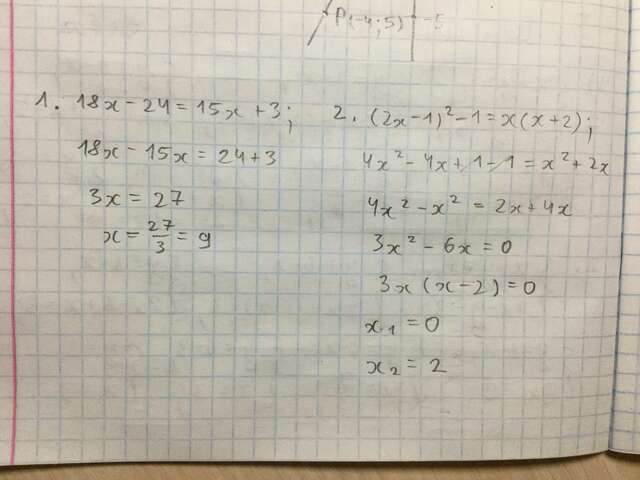 P(-4;5) -5
1. 18x - 24 = 15x + 3;
18x - 15x = 24 + 3
3x = 27
x = 27/3 = 9
2. (2x - 1)² - 1 = x(x + 2);
4x² - 4x + 1 - 1 = x² + 2x
4x² - x² = 2x + 4x
3x² - 6x = 0
3x (x - 2) = 0
x₁ = 0
x₂ = 2